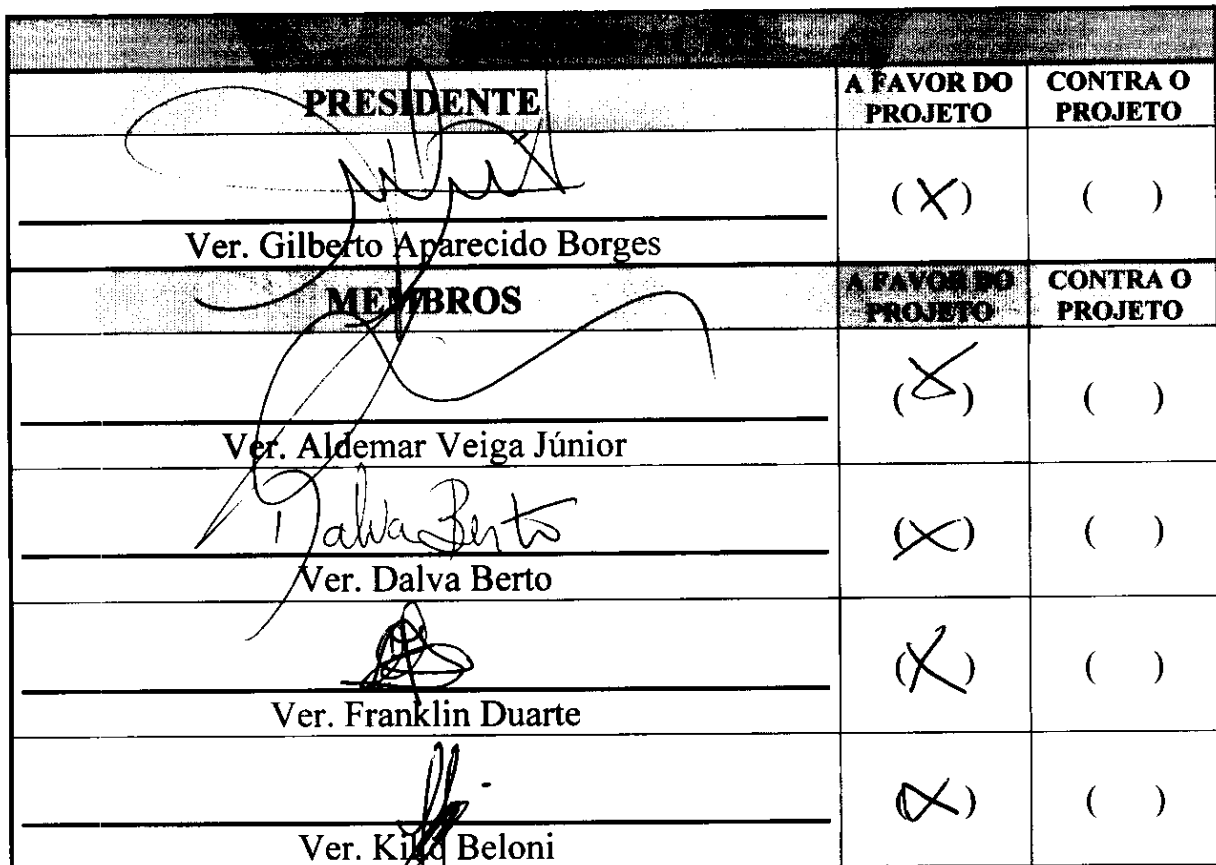 PRESIDENTE
A FAVOR DO
PROJETO
CONTRA O
PROJETO
(X)
( )
Ver. Gilberto Aparecido Borges
MEMBROS
A FAVOR DO
PROJETO
CONTRA O
PROJETO
(X)
( )
Ver. Aldemar Veiga Júnior
Dalva Berto
(X)
( )
Ver. Dalva Berto
(X)
( )
Ver. Franklin Duarte
(X)
( )
Ver. Beloni